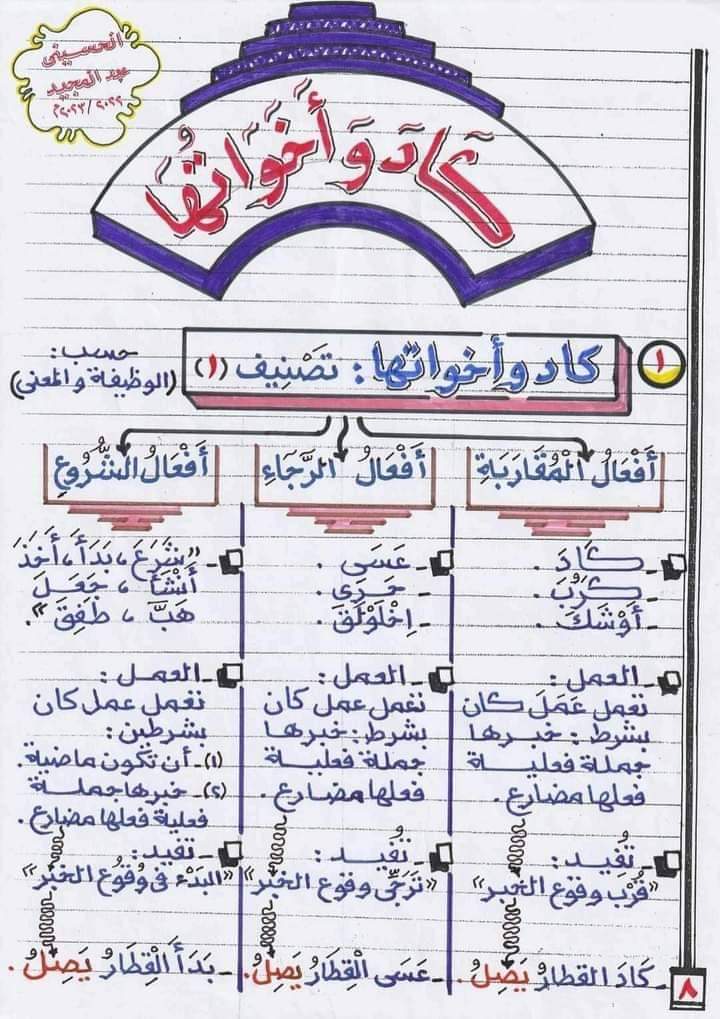 الحسيني
عبد المجيد
٢٠٢٢/٢٠٢٣م
كَادَ وَأَخَوَاتُهَا
١
كاد وأخواتها: تَصْنِيف (١)
حسب:
(الوظيفة والمعنى)
أَفْعَالُ الْمُقَارَبَةِ
- كَادَ.
- كَرُبَ.
- أَوْشَكَ.
- العمل:
تعمل عَمَلَ كان
بشرط: خبرها
جملة فعلية
فعلها مضارع.
- تُفِيد:
"قُرْب وقوع الخبر"
- كَادَ القطارُ يَصِلُ.
أَفْعَالُ الرَّجَاءِ
- عَسَى.
- حَرَى.
- اِخْلَوْلَقَ.
- العمل:
تعمل عمل كان
بشرط: خبرها
جملة فعلية
فعلها مضارع.
- تُفِيد:
"تَرَجِّى وقوع الخبر"
- عَسَى الْقِطَارُ يَصِلُ.
أَفْعَالُ الشُّرُوعِ
- "شَرَعَ، بَدَأَ، أَخَذَ
أَنْشَأَ، جَعَلَ
هَبَّ، طَفِقَ".
- العمل:
تعمل عمل كان
بشرطين:
(١)- أن تكون ماضية.
(٢)- خبرها جملة
فعلية فعلها مضارع.
- تفيد:
"البَدْء فى وُقُوع الخَبَر"
- بَدَأَ الْقِطَارُ يَصِلُ.
٨